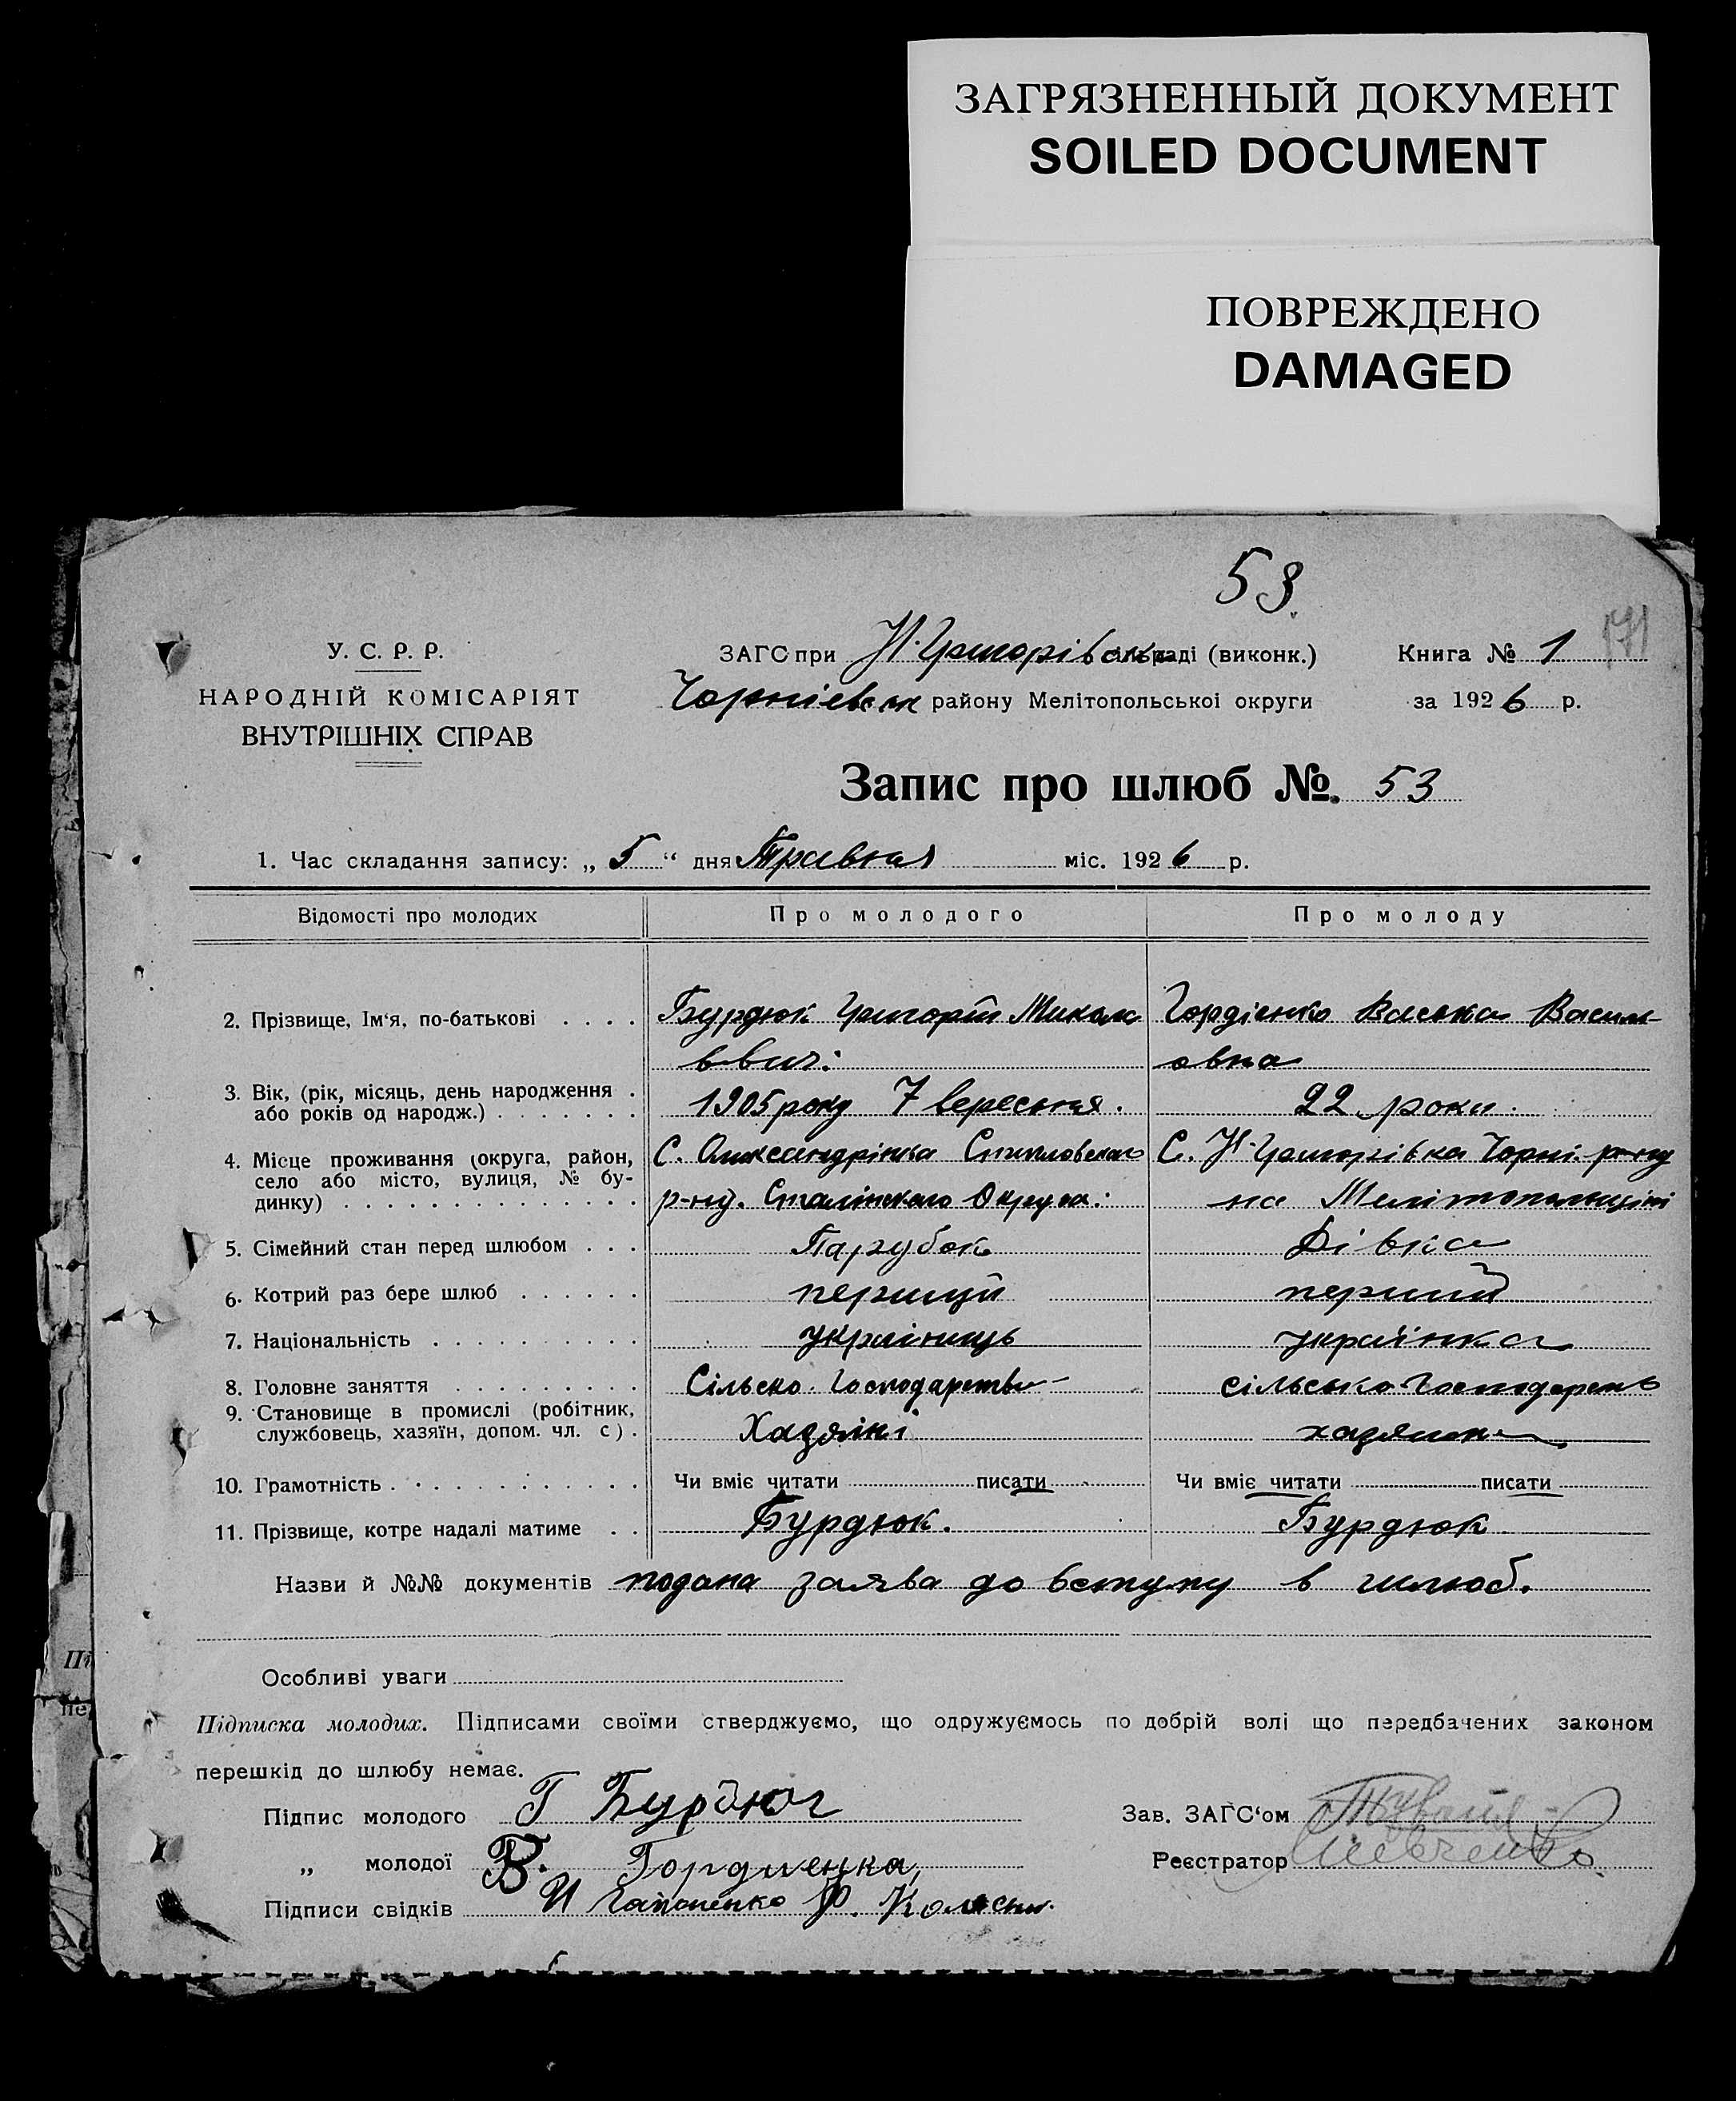 ЗАГРЯЗНЕННЫЙ ДОКУМЕНТ
SOILED DOCUMENT
ПОВРЕЖДЕНО
DAMAGED
53
171
У. С. Р. Р.
НАРОДНІЙ КОМІСАРІЯТ
ВНУТРІШНІХ СПРАВ
ЗАГС при Н-Григорівськ раді (виконк.)
Книга № 1
району Мелітопольської округи
за 1926 р.
Запис про шлюб №. 53
1. Час складання запису: „ 5 “ дня Травня міс. 1926 р.
Відомості про молодих
Про молодого
Про молоду
2. Прізвище, Ім‘я, по-батькові
Бурдюк Григорій Микола
Гордієнко Васька Васил-
ввич.
овна
3. Вік, (рік, місяць, день народження
або років од народж.)
1905 року 7 вересня.
22 роки.
4. Місце проживання (округа, район,
село або місто, вулиця, № бу-
динку)
С. Олександрінка
С. Н-Григорівка Чорні. р-ну
р-ну. Сталінского Округа:
на Мелітопольщіні
5. Сімейний стан перед шлюбом
Парубок
Дівка
6. Котрий раз бере шлюб
перший
перший
7. Національність
українець
українка
8. Головне заняття
Сільско-Господарство
сільсько-Господарств
9. Становище в промислі (робітник,
службовець, хазяїн, допом. чл. с).
Хазяіні
хазяінка
10. Грамотність
Чи вміє читати писати
Чи вміє читати писати
11. Прізвище, котре надалі матиме
Бурдюк.
Бурдюк
Назви й №№ документів подана заява до вступу в шлюб.
Особливі уваги
Підписка молодих. Підписами своїми стверджуємо, що одружуємось по добрій волі що передбачених законом
перешкід до шлюбу немає.
Підпис молодого Г Бурдюг
Зав. ЗАГС‘ом
„ молодої В. Гордиенка,
Реєстратор Шевченко
Підписи свідків И Гапоненко